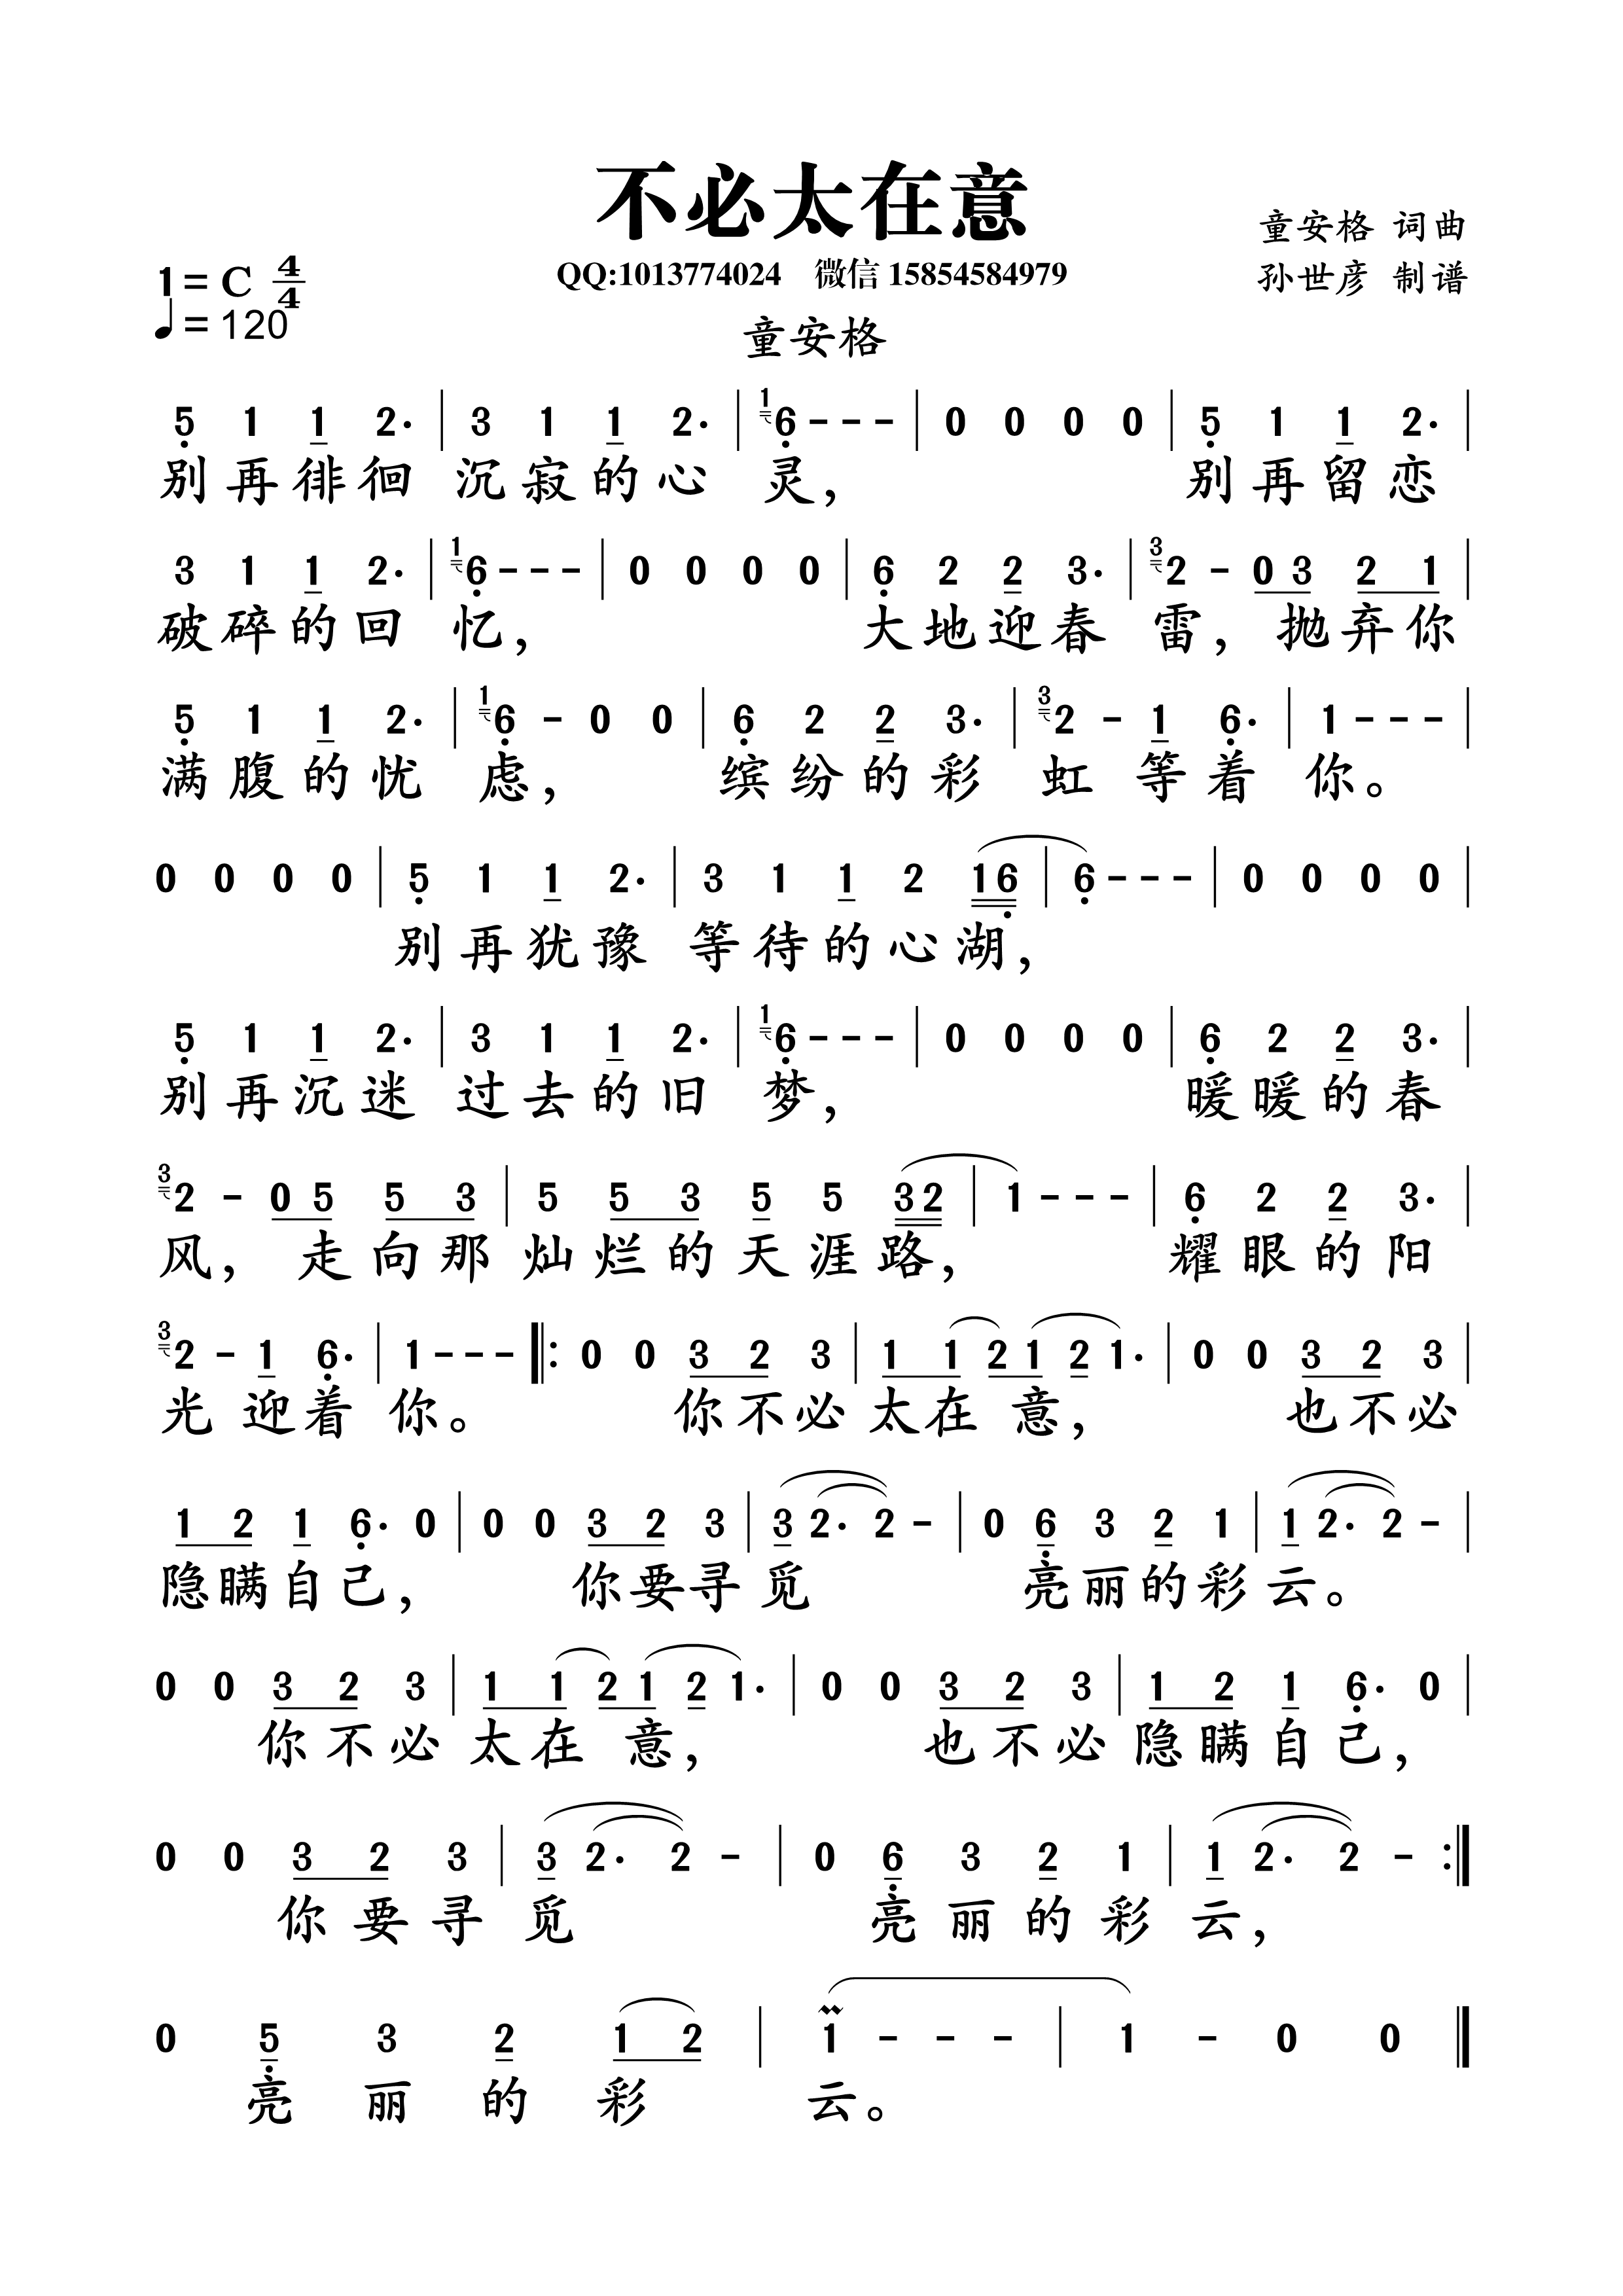 不必太在意
童安格 词曲
QQ:1013774024 微信 15854584979
孙世彦 制谱
1= C 4/4
♩= 120
童安格
5̣ 1 1 2. | 3 1 1 2. | 1 6̣ - - - | 0 0 0 0 | 5̣ 1 1 2. |
别再徘徊 沉寂的心 灵， 别再留恋
3 1 1 2. | 1 6̣ - - - | 0 0 0 0 | 6̣ 2 2 3. | 3 2 - 0 3 2 1 |
破碎的回 忆， 大地迎春 雷，抛弃你
5̣ 1 1 2. | 1 6̣ - 0 0 | 6̣ 2 2 3. | 3 2 - 1 6̣. | 1 - - - |
满腹的忧 虑， 缤纷的彩 虹 等着 你。
0 0 0 0 | 5̣ 1 1 2. | 3 1 1 2 1 6̣ | 6̣ - - - | 0 0 0 0 |
别再犹豫 等待的心湖，
5̣ 1 1 2. | 3 1 1 2. | 1 6̣ - - - | 0 0 0 0 | 6̣ 2 2 3. |
别再沉迷 过去的旧 梦， 暖暖的春
3 2 - 0 5 5 3 | 5 5 3 5 5 3 2 | 1 - - - | 6̣ 2 2 3. |
风，走向那 灿烂的天涯路， 耀眼的阳
3 2 - 1 6̣. | 1 - - - ‖: 0 0 3 2 3 | 1 1 2 1 2 1. | 0 0 3 2 3 |
光 迎着 你。 你不必 太在 意， 也不必
1 2 1 6̣. 0 | 0 0 3 2 3 | 3 2. 2 - | 0 6̣ 3 2 1 | 1 2. 2 - |
隐瞒自己， 你要寻 觅 亮丽的彩 云。
0 0 3 2 3 | 1 1 2 1 2 1. | 0 0 3 2 3 | 1 2 1 6̣. 0 |
你不必 太在 意， 也不必 隐瞒自己，
0 0 3 2 3 | 3 2. 2 - | 0 6̣ 3 2 1 | 1 2. 2 - :‖
你要寻 觅 亮丽的彩 云，
0 5̣ 3 2 1 2 | 1 - - - | 1 - 0 0 ‖
亮丽的彩 云。